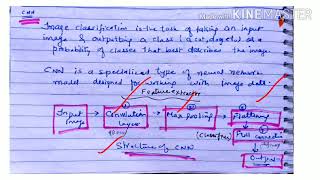 CNN
MADE WITH
KINEMASTER
Image classification is the task of taking an input
image & outputing a class (a cat, dog, etc) or a
probability of classes that best describes the image.
CNN is a specialized type of neural network
model designed for working with image data.
Feature extractor
Input Image
① Convolution layer
② Max Pooling
③ Flattening
(Classifier)
Full connection
Structure of CNN
Output